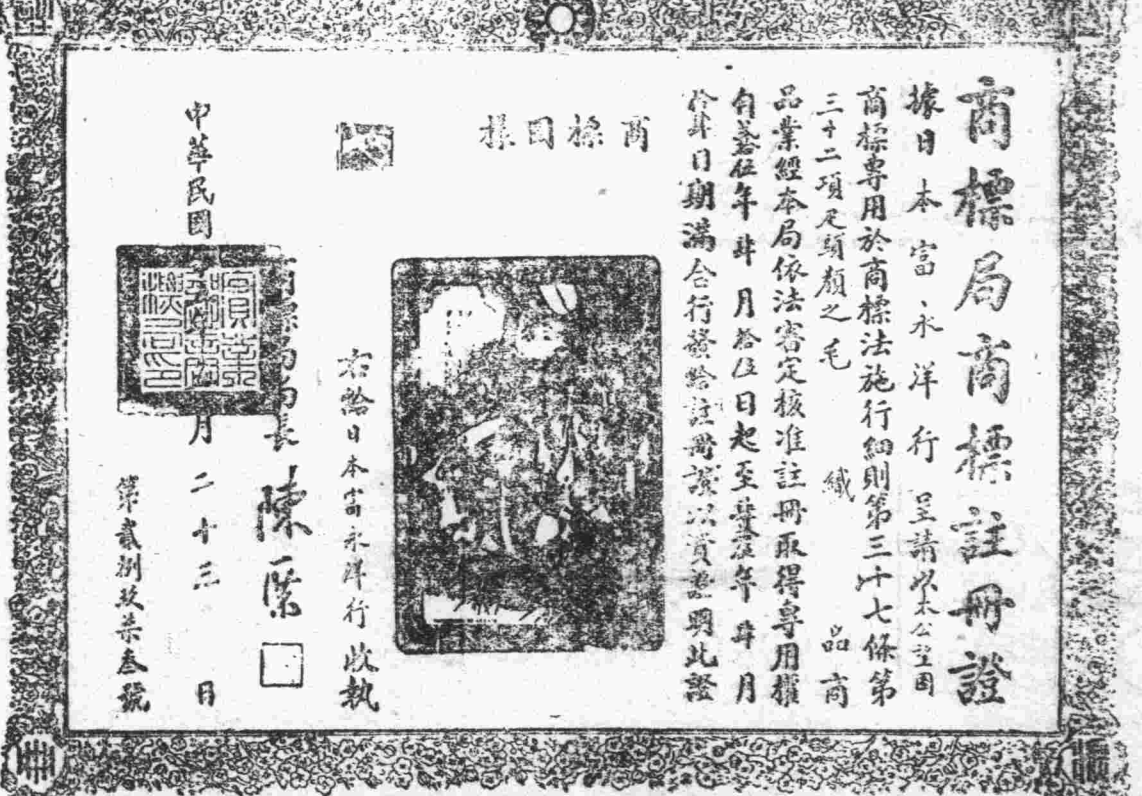 商標局商標註冊證
據日本富永洋行呈請以太公望圖
商標專用於商標法施行細則第三十七條第
三十二項疋頭類之毛織品商
品業經本局依法審定核准註冊取得專用權
自叁伍年肆月拾伍日起至年肆月
拾肆日期滿合行發給註冊證以資證明此證
商標圖樣
右給日本富永洋行收執
商標局局長陳
中華民國月二十三日
第貳捌玖柒叁號